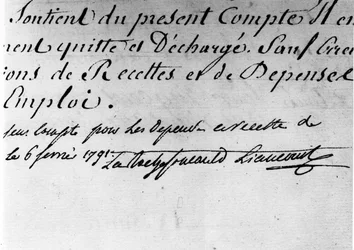 Soutient du present Compte Il en
ment quitte et Déchargé. Sauf Erre
ions de Recettes et de Depenses
Emploi.
Compte pour Les Depenses et recette de
le 6 fevrié 1791. La Rochefoucauld Liancourt